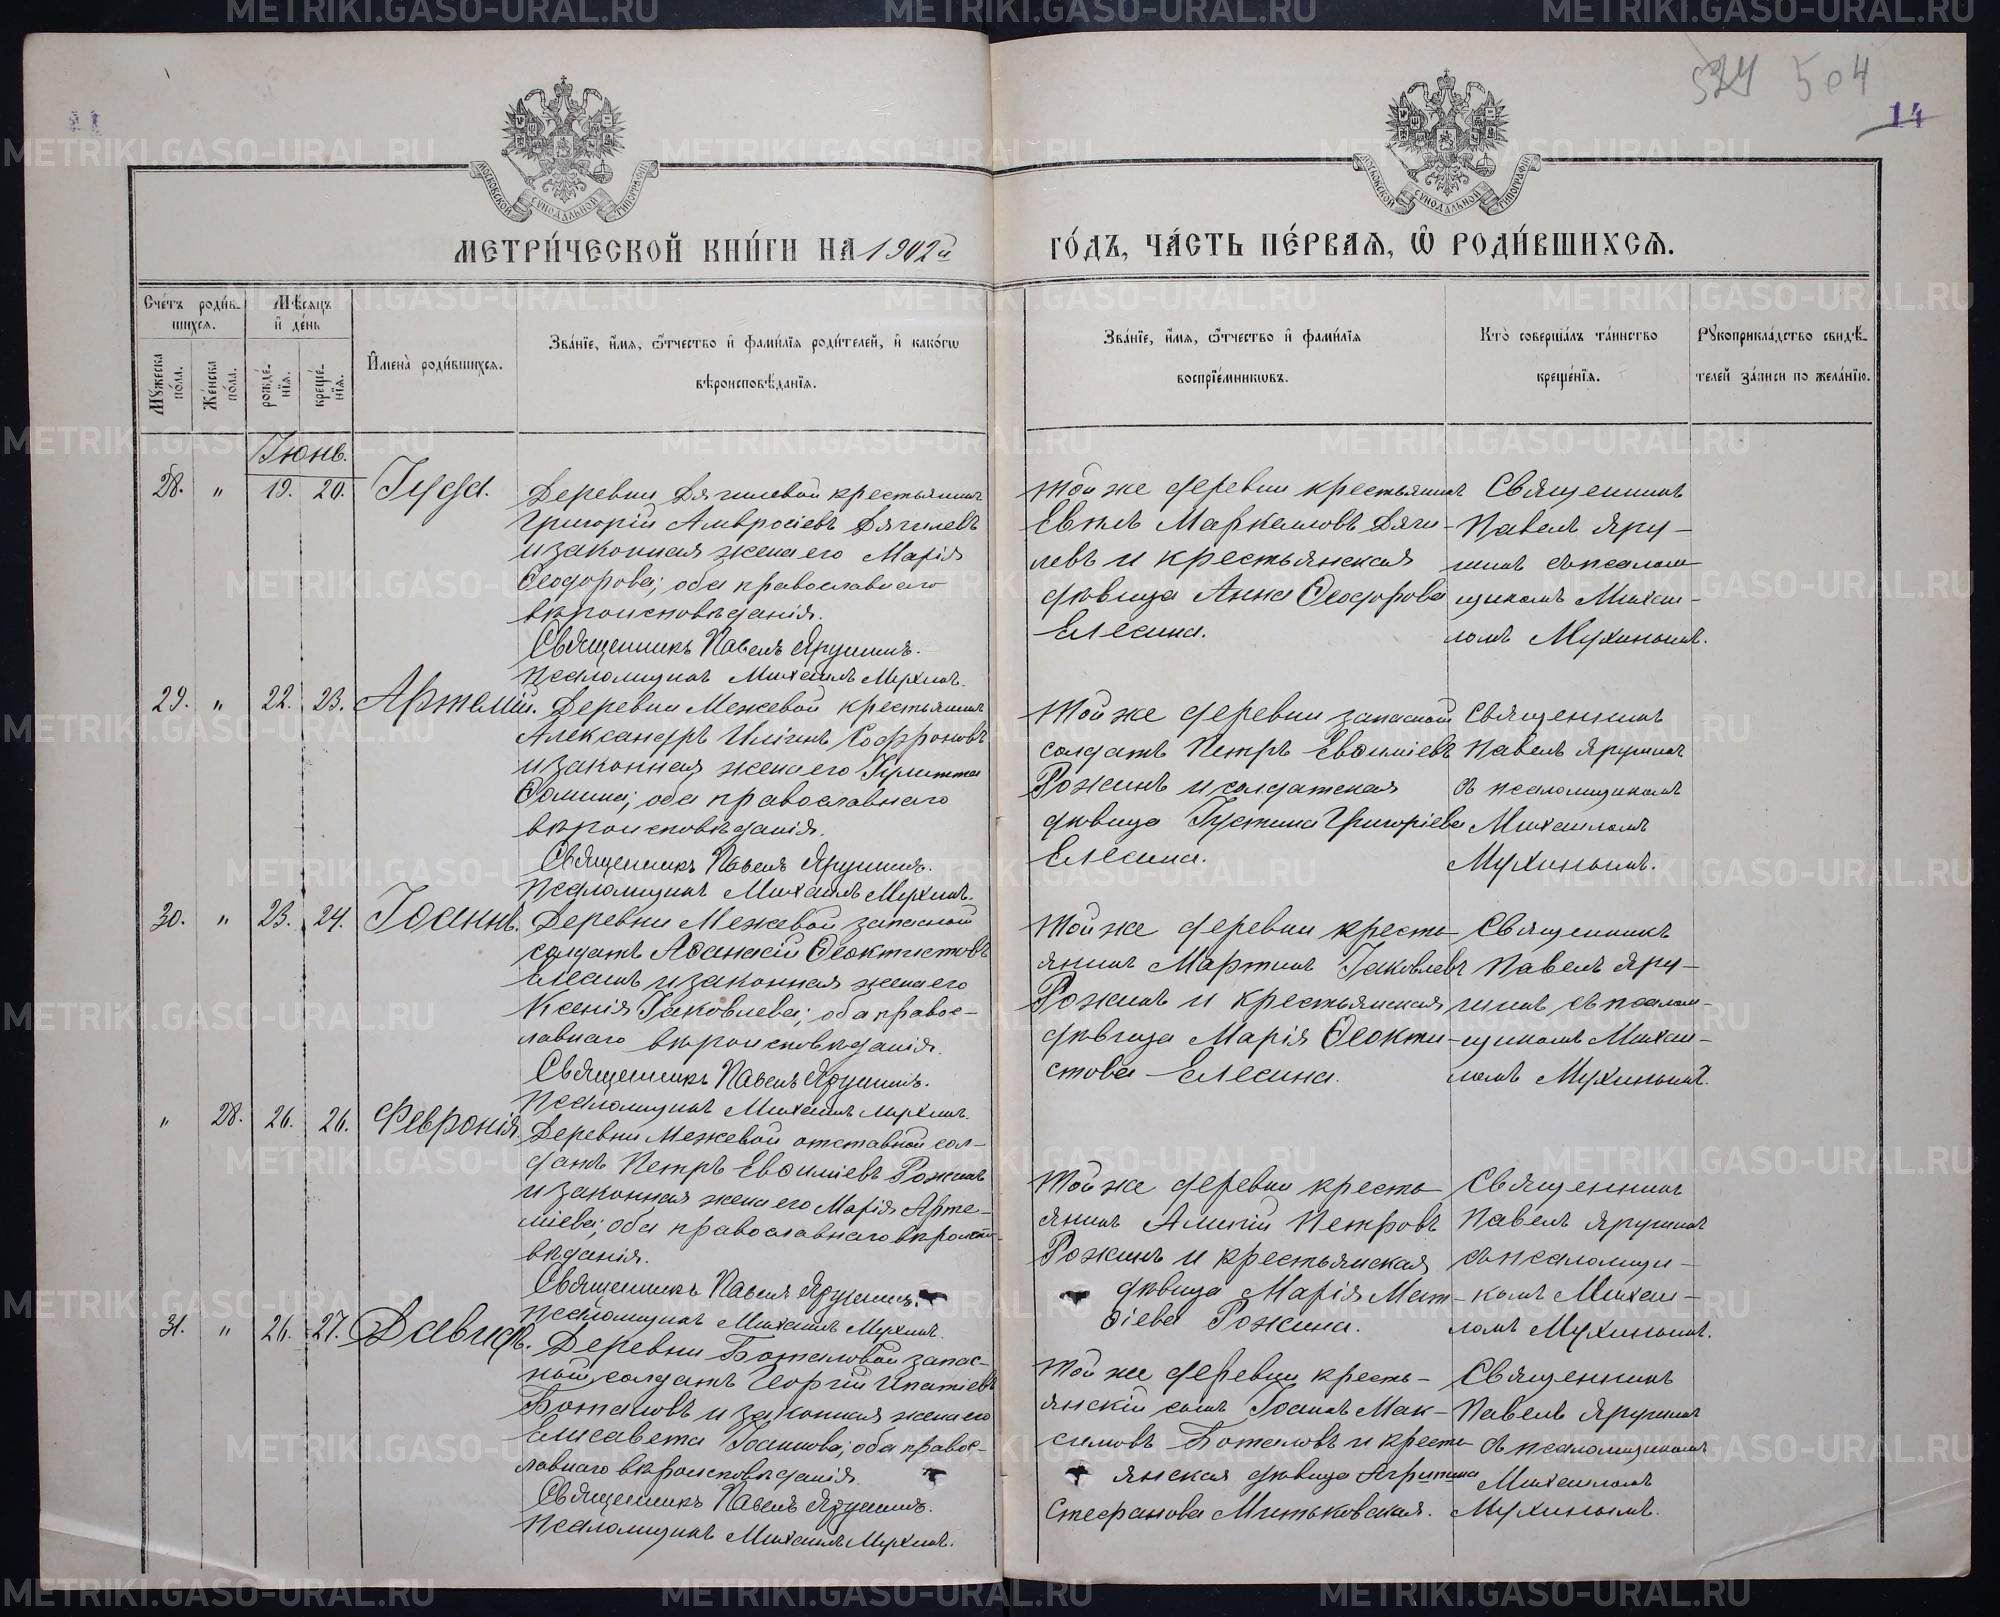 524 504
14
МОСКОВСКОЙ СУНОДАЛЬНОЙ ТИПОГРАФІИ
МОСКОВСКОЙ СУНОДАЛЬНОЙ ТИПОГРАФІИ
МЕТРИ́ЧЕСКОЙ КНИ́ГИ НА 1902й ГО́ДЪ, ЧА́СТЬ ПЕ́РВАѦ, Ѡ РОДИ́ВШИХСѦ.
Сче́тъ роди́в-
шихсѧ.
Мѣ́сѧцъ
и҆ де́нь
Мꙋ́жеска по́ла.
Же́нска по́ла.
рожде́-
нїѧ.
креще́-
нїѧ.
И҆мена̀ роди́вшихсѧ.
Зва́нїе, и҆́мѧ, ѻ҆́тчество и҆ фами́лїѧ роди́телей, и҆ како́гѡ
вѣроисповѣ́данїѧ.
Зва́нїе, и҆́мѧ, ѻ҆́тчество и҆ фами́лїѧ
воспрїе́мникѡвъ.
Кто̀ соверша́лъ та́инство
креще́нїѧ.
Рꙋкоприкла́дство свидѣ́-
телей за́писи по жела́нїю.
Іюнь.
28. " 19. 20. Іуда.
Деревни Дягилевой крестьянинъ
Григорій Амвросіевъ Дягилевъ
и законная жена его Марія
Ѳеодорова; оба православнаго
вѣроисповѣданія.
Священникъ Павелъ Ярушинъ.
Псаломщикъ Михаилъ Мухинъ.
Той же деревни крестьянинъ
Евплъ Маркелловъ Дяги-
левъ и крестьянская
дѣвица Анна Ѳеодорова
Елесина.
Священникъ
Павелъ Яру-
шинъ съ псалом-
щикомъ Михаи-
ломъ Мухинымъ.
29. " 22. 23. Артемій.
Деревни Межевой крестьянинъ
Александръ Иліинъ Софроновъ
и законная жена его Іулитта
Ѳомина; оба православнаго
вѣроисповѣданія.
Священникъ Павелъ Ярушинъ.
Псаломщикъ Михаилъ Мухинъ.
Той же деревни запасной
солдатъ Петръ Евѳиміевъ
Рожинъ и солдатская
дѣвица Іустина Григоріева
Елесина.
Священникъ
Павелъ Ярушинъ
съ псаломщикомъ
Михаиломъ
Мухинымъ.
30. " 23. 24. Іоаннъ.
Деревни Межевой запасной
солдатъ Аѳанасій Ѳеоктистовъ
Елесинъ и законная жена его
Ксенія Іаковлева; оба правос-
лавнаго вѣроисповѣданія.
Священникъ Павелъ Ярушинъ.
Псаломщикъ Михаилъ Мухинъ.
Той же деревни кресть-
янинъ Мартинъ Іаковлевъ
Рожинъ и крестьянская
дѣвица Марія Ѳеокти-
стова Елесина.
Священникъ
Павелъ Яру-
шинъ съ псалом-
щикомъ Михаи-
ломъ Мухинымъ.
" 28. 26. 26. Февронія.
Деревни Межевой отставной сол-
датъ Петръ Евѳиміевъ Рожинъ
и законная жена его Марія Арте-
міева; оба православнаго вѣроиспо-
вѣданія.
Священникъ Павелъ Ярушинъ.
Псаломщикъ Михаилъ Мухинъ.
Той же деревни кресть-
янинъ Петровъ
Рожинъ и крестьянская
дѣвица Марія Мат-
ѳіева Рожина.
Священникъ
Павелъ Ярушинъ
съ псаломщи-
комъ Михаи-
ломъ Мухинымъ.
31. " 26. 27. Давидъ.
Деревни Боталовой запас-
ной солдатъ Георгій Ипатіевъ
Боталовъ и законная жена его
Елисавета Іоаннова; оба правос-
лавнаго вѣроисповѣданія.
Священникъ Павелъ Ярушинъ.
Псаломщикъ Михаилъ Мухинъ.
Той же деревни кресть-
янскій сынъ Іоаннъ Мак-
симовъ Боталовъ и кресть-
янская дѣвица Агрипина
Стефанова Митьковская.
Священникъ
Павелъ Ярушинъ
съ псаломщикомъ
Михаиломъ
Мухинымъ.
METRIKI.GASO-URAL.RU